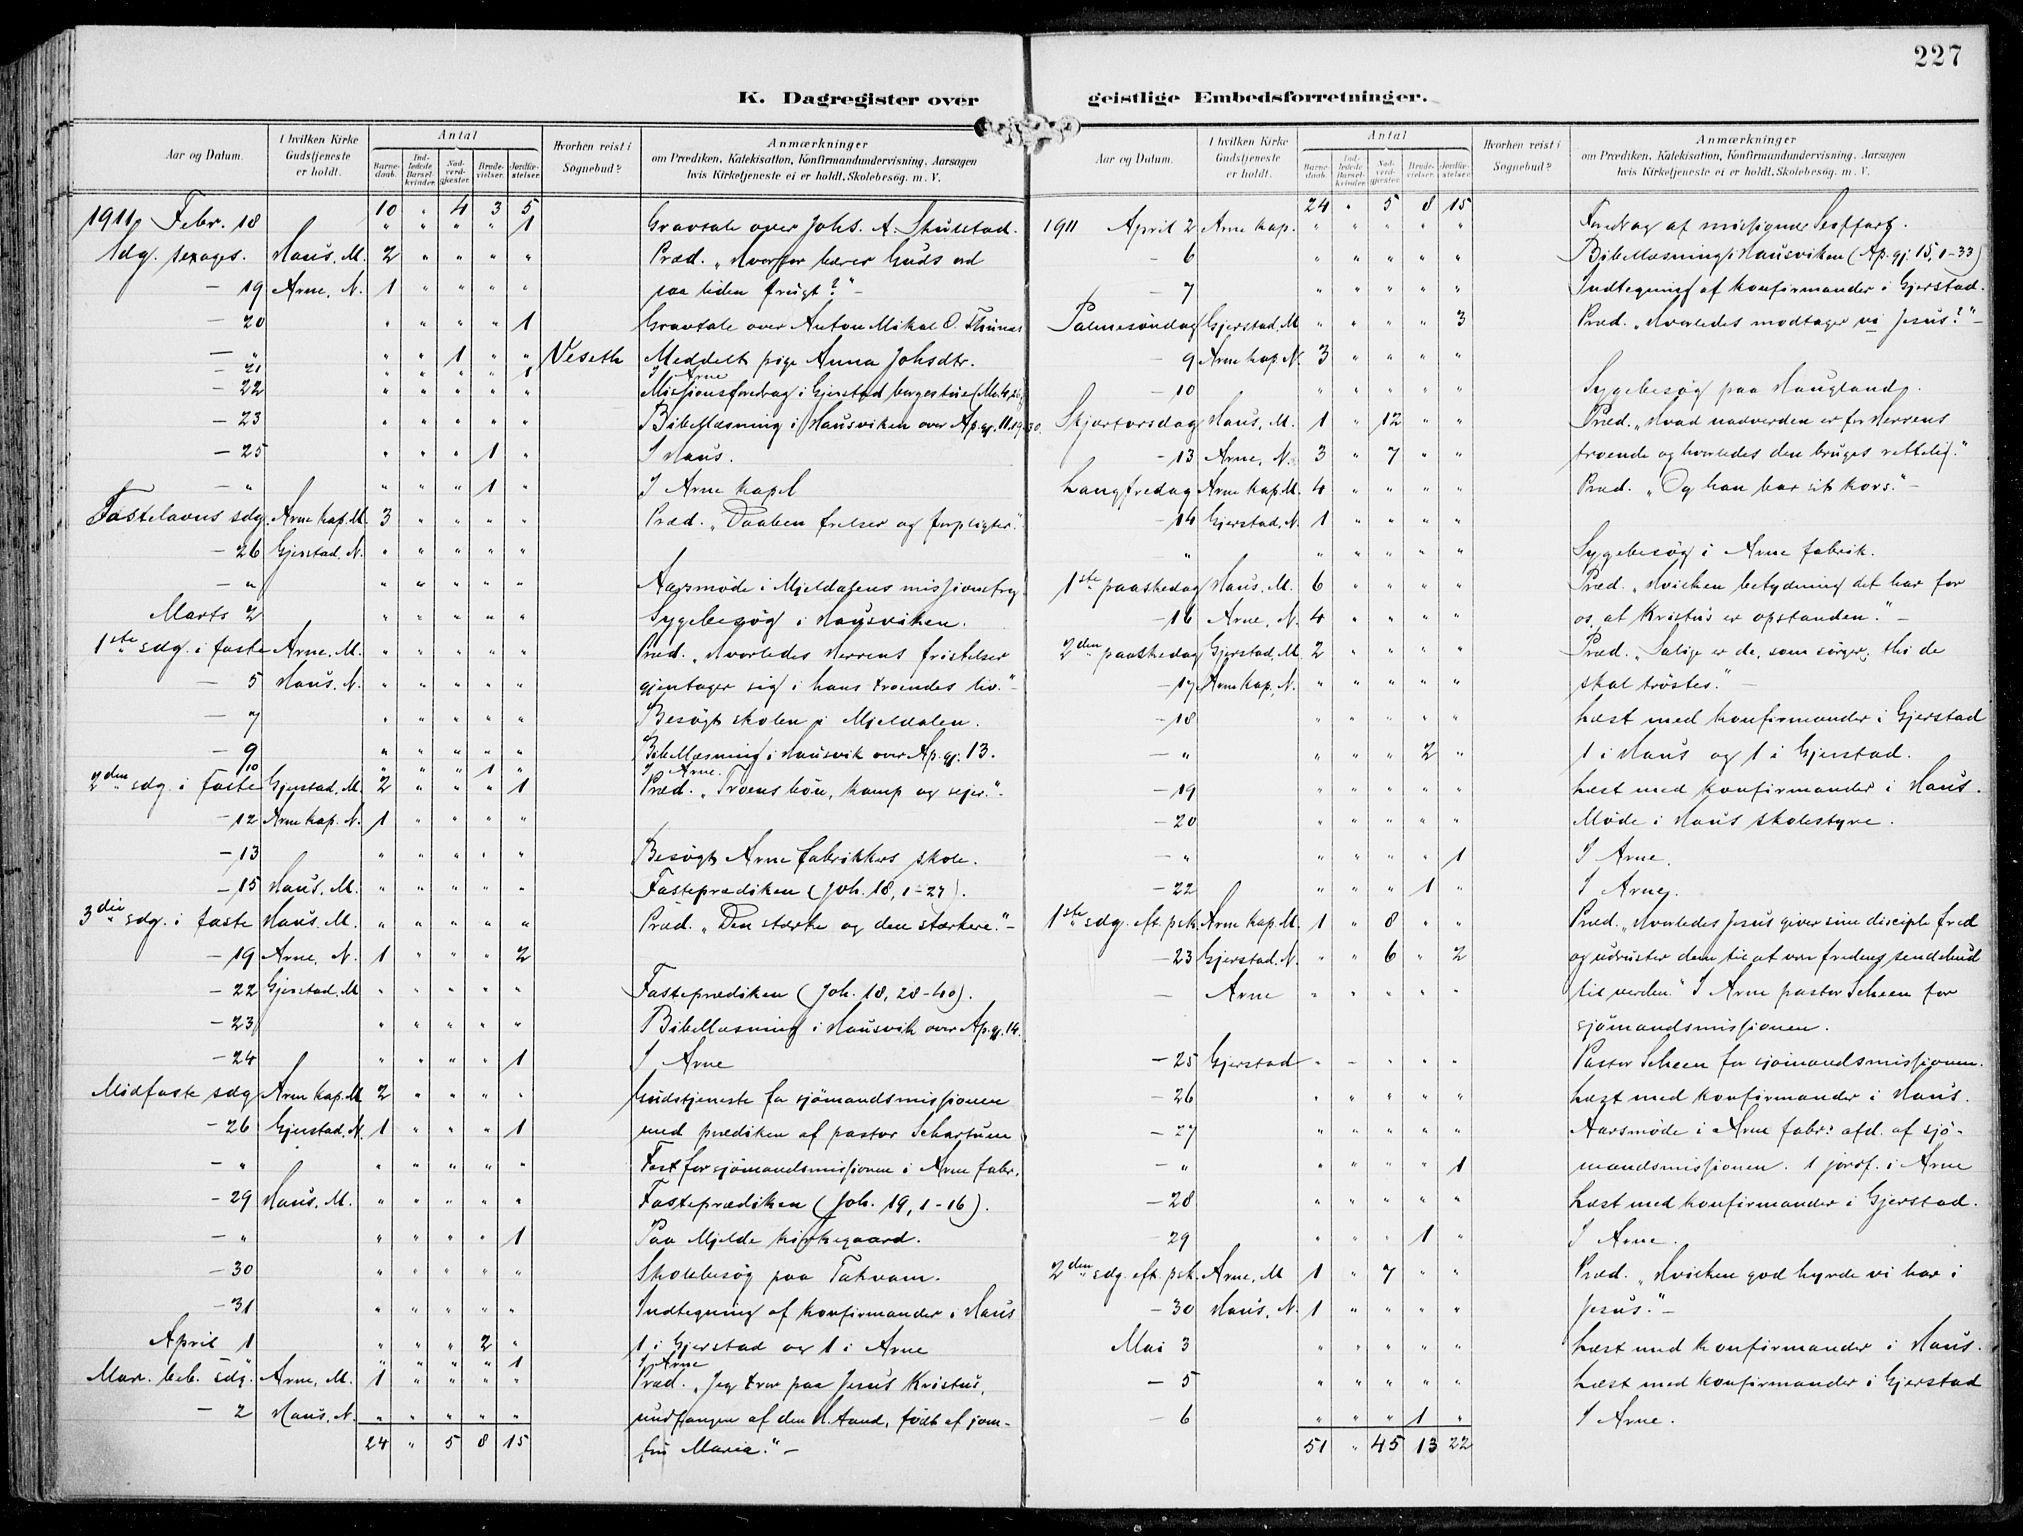 227
K. Dagregister over geistlige Embedsforretninger.
Aar og Datum. | I hvilken Kirke Gudstjeneste er holdt. | Antal | Barnedaab. | Indledede Barselkvinder. | Nadverdgjester. | Brudevielser. | Jordfæstelser. | Hvorhen reist i Sognebud? | Anmærkninger om Prædiken, Katekisation, Konfirmandundervisning, Aarsagen hvis Kirketjeneste ei er holdt, Skolebesøg. m. V.
10 " 4 3 5
1911, Febr. 18 " " " " 1 Gravtale over Johs. A.
Sdg. sexages. Haus, M. 2 " " " " Præd. „Hvorfor bærer Guds ord
- 19 Arne, N. 1 " " " " saa liden frugt?" -
- 20 " " " " 1 Gravtale over Anton Mikal O.
- " " " 1 " " Veseth Meddelt pige Anna Johsdtr.
- 21 " " " " 1 I Arne
- 22 " " " " " Missionsforedrag i Gjerstad
- 23 " " " " " Bibellæsning i Hausviken over Ap. gj. 11, 19-30.
- 25 " " " 1 " I Haus.
- " " " " 1 " I Arne kapel
Fastelavns sdg. Arne kap. M. 3 " " " " Præd. „Daaben frelser og forpligter."
- 26 Gjerstad, N. " " " " "
- " " " " " " Aarsmøde i Mjeldalens
Marts 2 " " " " " Sygebesøg i Hausviken.
1ste sdg. i faste Arne, M. " " " " " Præd. „Hvorledes Herrens fristelser
- 5 Haus, N. " " " " " gjentager sig i hans troendes liv." -
- 7 " " " " " Besøgt skolen i Mjeldalen.
- 9 " " " " " Bibellæsning i Hausvik over Ap. gj. 13.
10 " " " 1 " I Arne.
2den sdg. i faste Gjerstad, M. 2 " " " 1 Præd. „Troens bøn, kamp og sejer." -
- 12 Arne kap. N. 1 " " " "
- 13 " " " " " Besøgt Arne fabrikkers skole.
- 15 Haus, M. " " " " " Fasteprædiken (Joh. 18, 1-27).
3die sdg. i faste Haus, M. " " " " " Præd. „Den stærke og den stærkere." -
- 19 Arne, N. 1 " " " 2
- 22 Gjerstad, M " " " " " Fasteprædiken (Joh. 18, 28-40).
- 23 " " " " " Bibellæsning i Hausvik over Ap. gj. 14.
- 24 " " " " 1 I Arne
Midfaste sdg Arne kap. M 2 " " " " Gudstjeneste for sjömandsmissionen
- 26 Gjerstad, N. 1 " " " 1 med prædiken af pastor Schartum
- " " " " " " Fest for sjömandsmissionen i Arne fabr.
- 29 Haus, M. " " " " " Fasteprædiken (Joh. 19, 1-16).
- " " " " " 1 Paa Mjelde kirkegaard.
- 30 " " " " " Skolebesøg paa Takvam.
- 31 " " " " " Indtegning af konfirmander i Haus
April 1 " " " 2 " 1 i Gjerstad og 1 i Arne
" " " " 1 I Arne
Mar. beb. sdg. Arne, M. 1 " " " " Præd. „Jeg tror paa Jesus Kristus,
- 2 Haus, N. " " " " " undfangen af den H. Aand, født af jom-
24 " 5 8 15 fru Maria." -
Aar og Datum. | I hvilken Kirke Gudstjeneste er holdt. | Antal | Barnedaab. | Indledede Barselkvinder. | Nadverdgjester. | Brudevielser. | Jordfæstelser. | Hvorhen reist i Sognebud? | Anmærkninger om Prædiken, Katekisation, Konfirmandundervisning, Aarsagen hvis Kirketjeneste ei er holdt, Skolebesøg. m. V.
24 " 5 8 15
1911 April 2 Arne kap. " " " " " Foredrag af missionær
- 6 " " " " " Bibellæsning i Hausviken (Ap. gj. 15, 1-33)
- 7 " " " " " Indtegning af konfirmander i Gjerstad.
Palmesøndag Gjerstad, M " " " " 3 Præd. „Hvorledes modtager vi Jesus?" -
- 9 Arne kap. N. 3 " " " "
- 10 " " " " " Sygebesøg paa Haugland.
Skjærtorsdag Haus, M. 1 " 12 " " Præd. „Hvad nadverden er for Herrens
- 13 Arne, N. 3 " 7 " " troende og hvorledes den bruges rettelig."
Langfredag Arne kap. M. 4 " " " " Præd. „Og han bar sit kors." -
- 14 Gjerstad, N. 1 " " " "
" " " " " " Sygebesøg i Arne fabrik.
1ste paaskedag Haus, M. 6 " " " " Præd. „Hvilken betydning det har for
- 16 Arne, N. 4 " " " " os, at Kristus er opstanden." -
2den paaskedag Gjerstad, M 2 " " " " Præd. „Salige er de, som sørger; thi de
- 17 Arne kap, N. " " " " " skal trøstes." -
- 18 " " " " " Læst med konfirmander i Gjerstad
- " " " " 2 " 1 i Haus og 1 i Gjerstad.
- 19 " " " " " Læst med konfirmander i Haus.
- 20 " " " " " Møde i Haus skolestyre.
- " " " " " 1 I Arne.
- 22 " " " 1 " I Arne.
1ste sdg. eft. psk. Arne kap. M. 1 " 8 " " Præd. „Hvorledes Jesus giver sine disciple fred
- 23 Gjerstad, N. " " 6 " 2 og udruster dem til at være fredens sendebud
- Arne " " " " " til verden." I Arne pastor Scheen for
sjömandsmissionen.
- 25 Gjerstad " " " " " Pastor Scheen for sjömandsmissionen.
- 26 " " " " " Læst med konfirmander i Haus.
- 27 " " " " " Aarsmøde i Arne fabr: afd. af sjö-
- " " " " " 1 mandsmissionen. 1 jordf. i Arne
- 28 " " " " " Læst med konfirmander i Gjerstad.
- 29 " " " 1 " I Arne.
2den sdg. eft. psk. Arne, M 1 " 7 " " Præd. „Hvilken god hyrde vi har i
- 30 Haus, N. 1 " " " " Jesus." -
Mai 3 " " " " " Læst med konfirmander i Haus.
- 5 " " " " " Læst med konfirmander i Gjerstad
- 6 " " " 1 " I Arne.
51 " 45 13 22